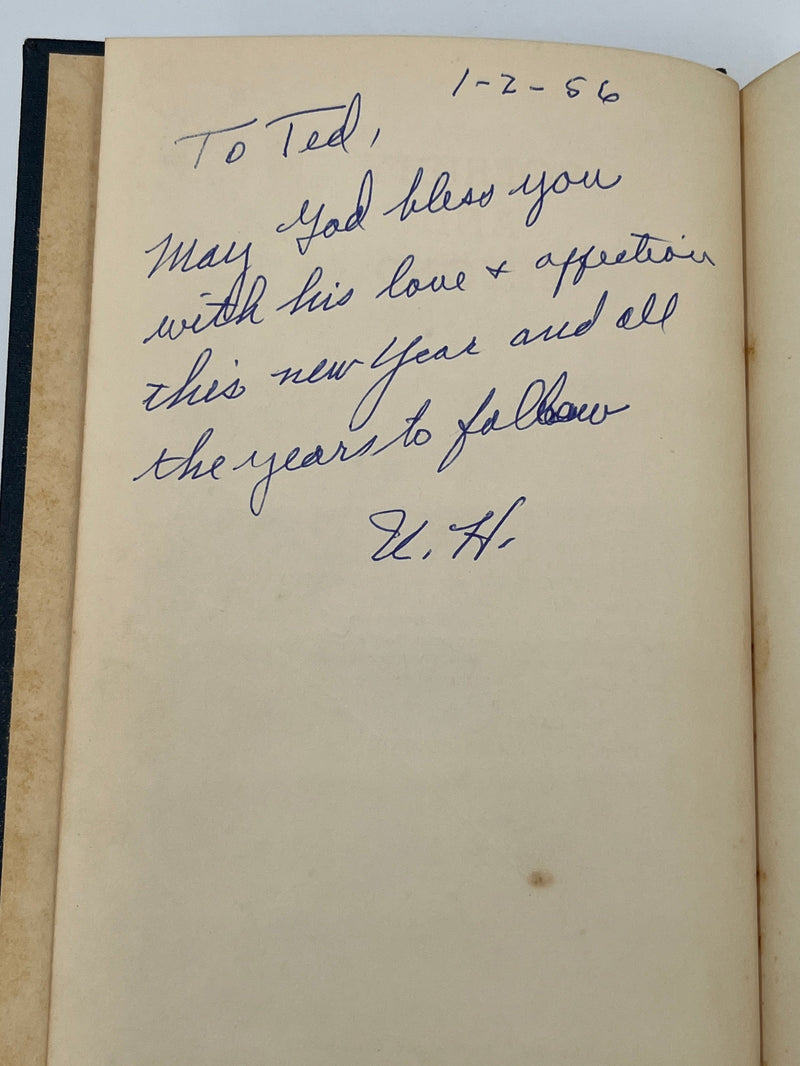 1-2-56
To Ted,
May God bless you
with his love + affection
this new Year and all
the years to follow
U. H.